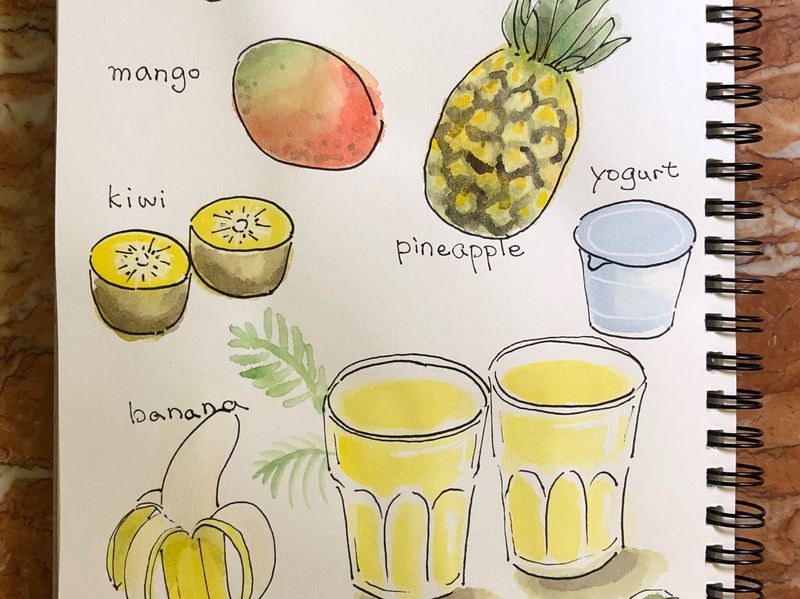 mango
kiwi
pineapple
yogurt
banana